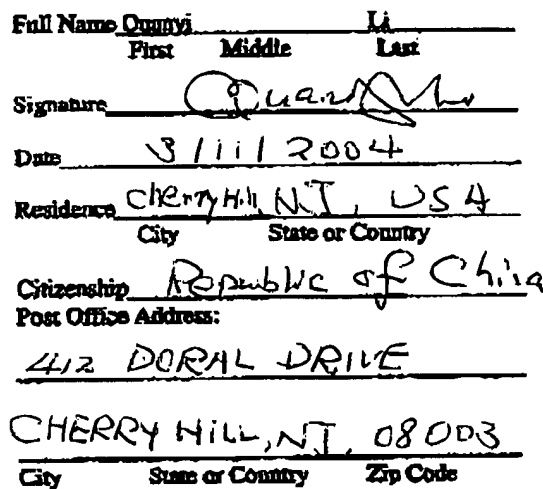 Full Name Quunyi Li
First Middle Last
Signature
Date 3/11/2004
Residence Cherry Hill, NJ, USA
City State or Country
Citizenship Republic of China
Post Office Address:
412 DORAL DRIVE
CHERRY HILL, NJ, 08003
City State or Country Zip Code